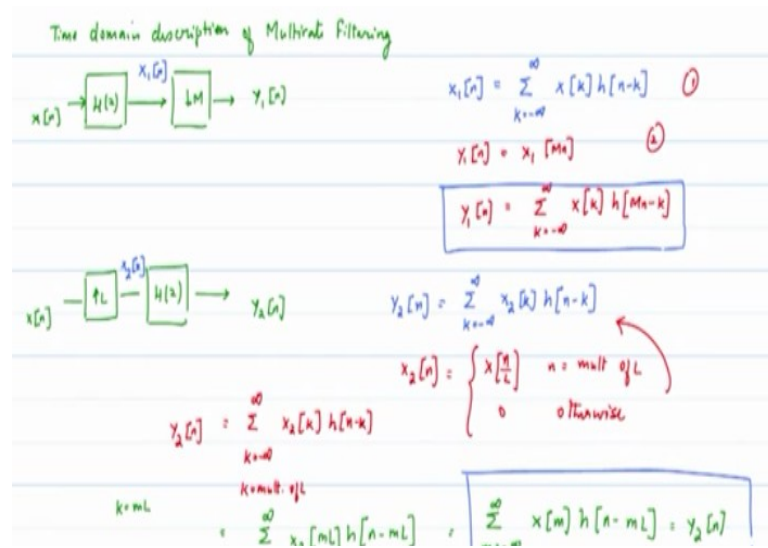 Time domain description of Multirate Filtering
x[n] → H(z) → x₁[n] → ↓M → y₁[n]
x₁[n] = ∑_{k=-∞}^{∞} x[k] h[n-k] ①
y₁[n] = x₁[Mn] ②
y₁[n] = ∑_{k=-∞}^{∞} x[k] h[Mn-k]
x[n] — ↑L — x₂[n] — H(z) → y₂[n]
y₂[n] = ∑_{k=-∞}^{∞} x₂[k] h[n-k]
x₂[n] = { x[n/L] n = mult of L
0 otherwise
y₂[n] = ∑_{k=-∞}^{∞} x₂[k] h[n-k]
k=mult. of L
k=mL
= ∑^{∞} x₂[mL] h[n-mL] = ∑^{∞} x[m] h[n-mL] = y₂[n]